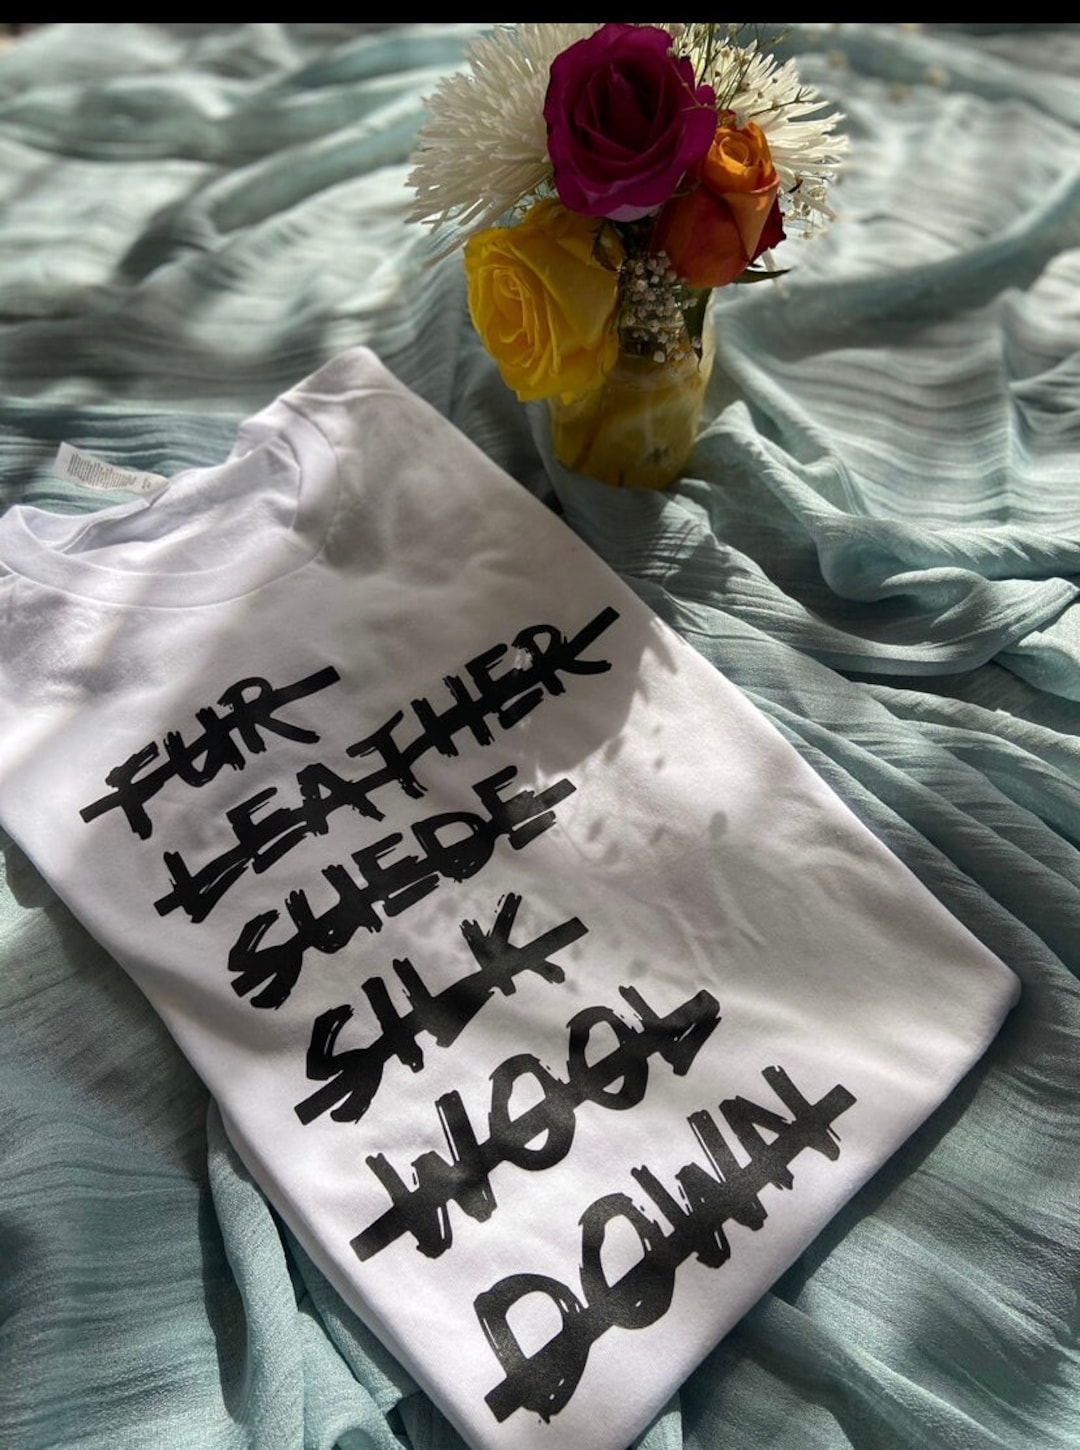 FUR
LEATHER
SUEDE
SILK
WOOL
DOWN